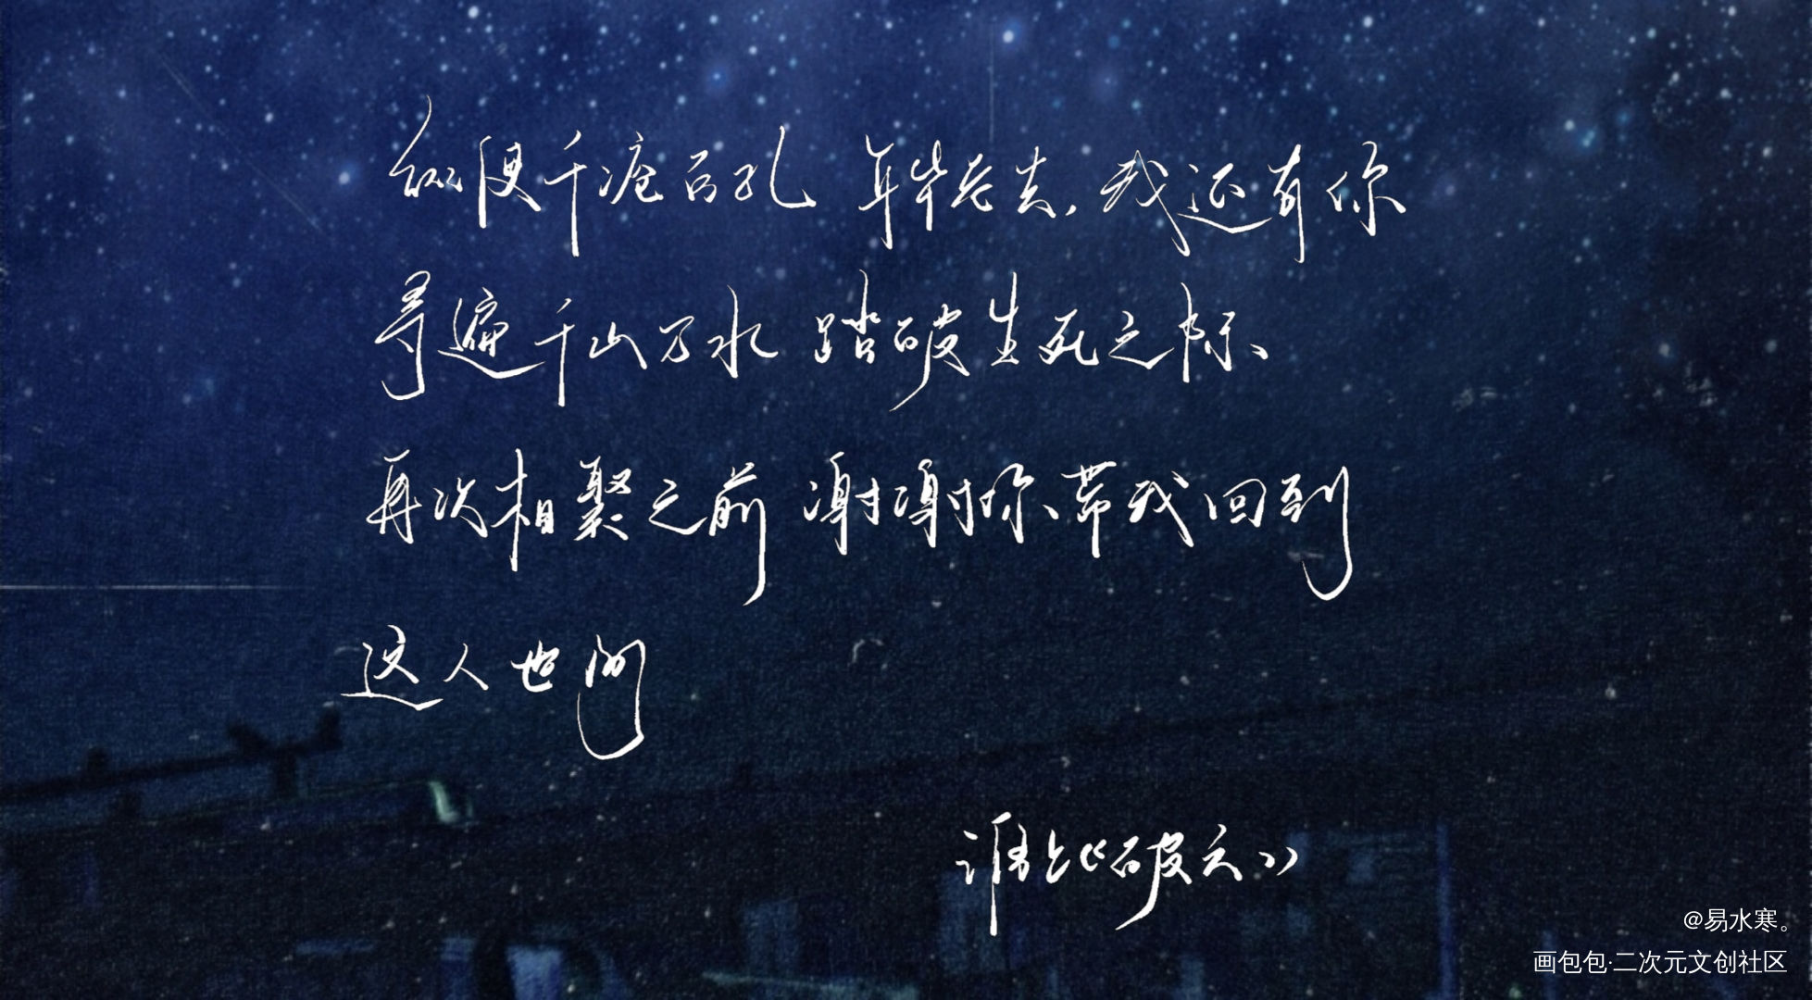 纵使千疮百孔 年华老去，我还有你
寻遍千山万水 踏破生死之际
再次相聚之前 谢谢你带我回到
这人世间
淮上《破云》
@易水寒。
画包包·二次元文创社区